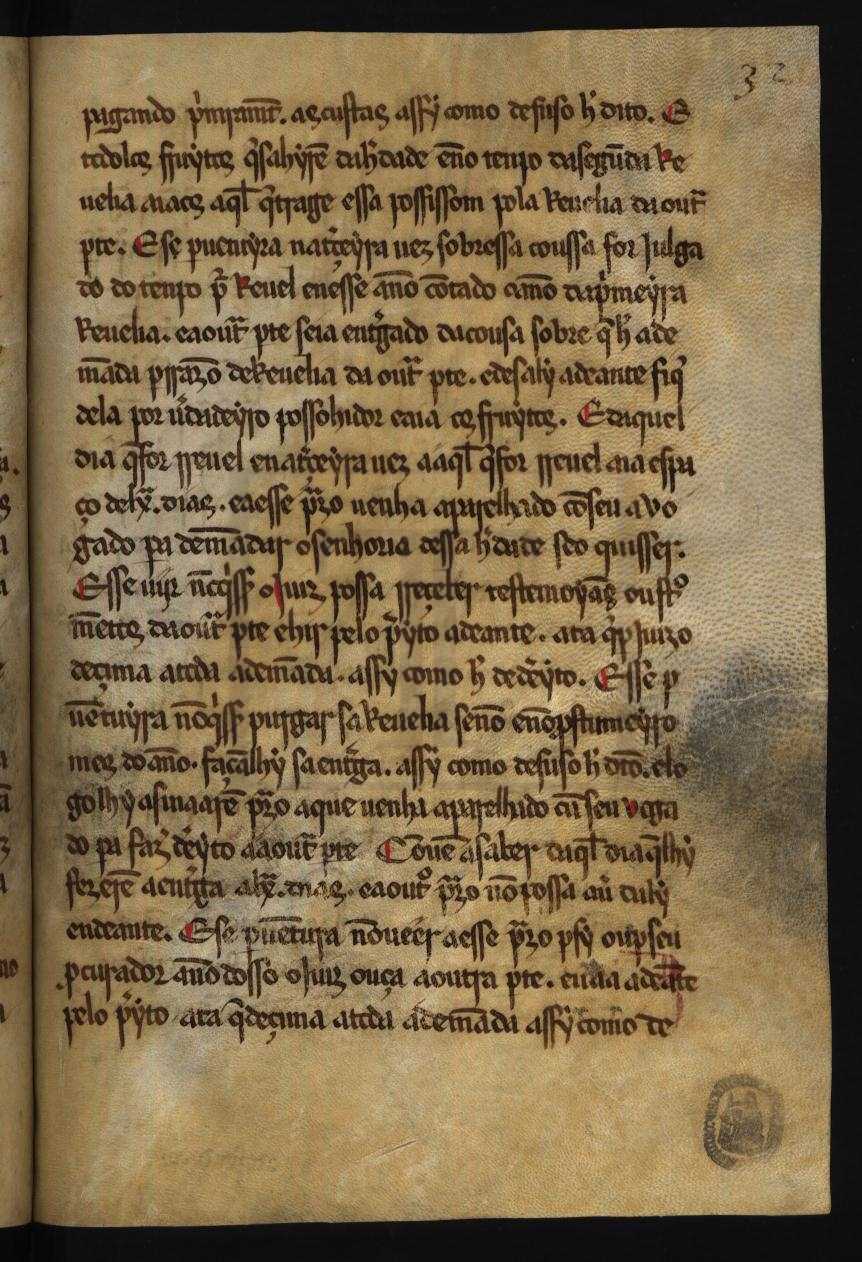 32
pagando p'mjramẽt. as custas assy como desuso h̃ dito. E
todolos fruytos q̃ sahyrẽ da h̃dade eno tenpo da segũda Re
uelia aia os aql̃ q̃ trage essa possissom pola Reuelia da outr̃
pte. E se p uentyra na t'çeyra uez sobressa coussa for Julga
do do tenpo p̃ Reuel en esse ãno cõtado o ãno da p'meyra
Reuelia. e a outr̃ pte seia entg̃ado da cousa sobre q̃ h̃ a de
mãda p rrazõ de Reuelia da outr̃ pte. e des aly adeante fiq̃
dela por u'dadeyro possohidor e aia os fruytos. E daquel
dia q̃ for rreuel en a t'çeyra uez a aql̃ q̃ for rreuel aia espa
ço de lx̃. dias. e a esse p̃zo uenha aparelhado cõ seu auo
gado pa demãdar o senhorio dessa h̃dade sse o quisser.
E sse uijr nõ q'ss̃ o Juiz possa rreçeber testemoyas ou str̃o
mẽtos da outr̃ pte e hir pelo p̃yto adeante. ata q̃ p Juizo
deçima a toda a demãda. assy como h̃ de dẽyto. E sse p
uẽtuyra nõ q'ss̃ purgar sa Reuelia senõ eno postumeyro
mes do ãno. façã lhy sa entg̃a. assy como desuso h̃ dito. e lo
go lhy asinaarẽ p̃zo a que uenha aparelhado cũ seu uoga
do pa faz̃ dẽyto a a outr̃ pte Cõuẽ a saber daql̃ dia q̃ lhy
fezerẽ a entg̃a a lx̃. dias. e a outr̃o p̃zo nõ possa au' daly
endeante. E se p uẽtura nõ ueer a esse p̃zo p sy ou p seu
pcurador auõdosso o Juiz ouça a outra pte. e uaa adeãte
pelo p̃yto ata q̃ deçima a toda a demãda assy como de